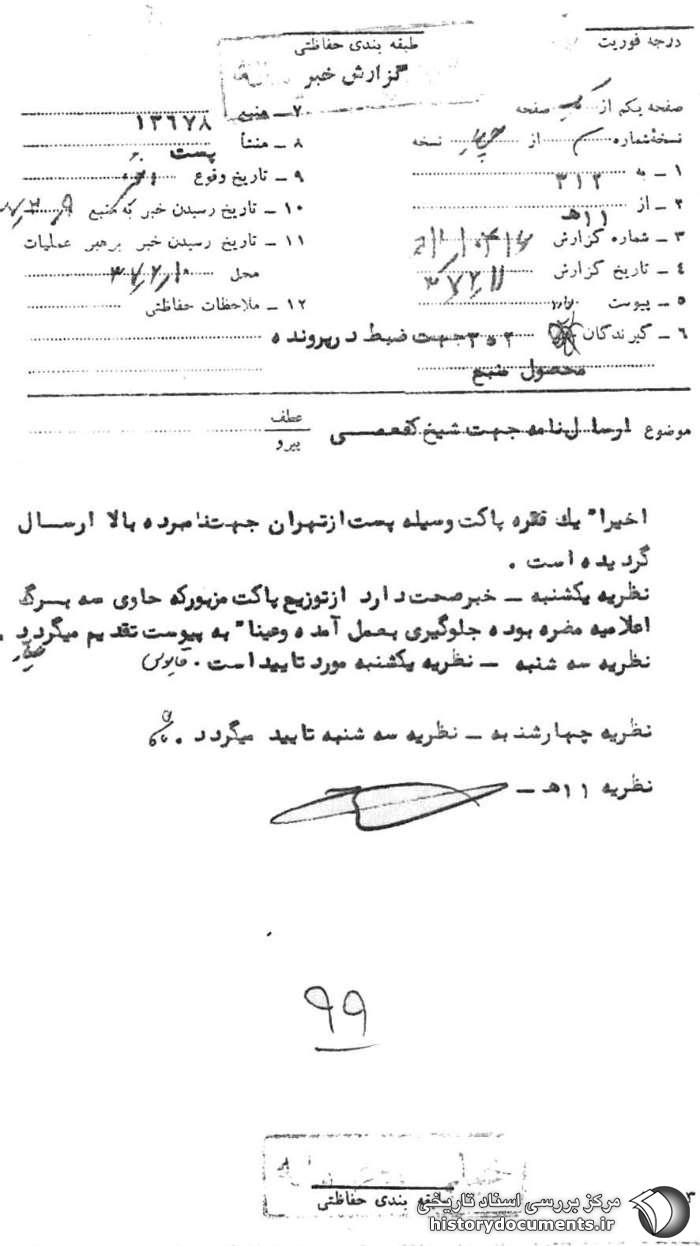 درجه فوریت
طبقه بندی حفاظتی
گزارش خبر
صفحه یکم از یک صفحه
نسخهٔ شماره از چهار نسخه
۱ ـ به ۳۱۲
۲ ـ از ۱۱ه‍
۳ ـ شماره گزارش
۴ ـ تاریخ گزارش ۳۷٫۲٫۱۱
۵ ـ پیوست دارد
۶ ـ گیرندگان ۳۰۲ جهت ضبط در پرونده
محصول منبع
۷ ـ منبع ۱۳۶۷۸
۸ ـ منشأ پست
۹ ـ تاریخ وقوع
۱۰ ـ تاریخ رسیدن خبر به منبع
۱۱ ـ تاریخ رسیدن خبر برهبر عملیات
محل ۳۷٫۲٫۱۰
۱۲ ـ ملاحظات حفاظتی
موضوع ارسال نامه جهت شیخ کفعمی
عطف
پیرو
اخیرا" یك فقره پاکت وسیله پست از تهران جهت نامبرده بالا ارسال
گردیده است .
نظریه یکشنبه ـ خبر صحت دارد از توزیع پاکت مزبور که حاوی سه برگ
اعلامیه مضره بوده جلوگیری بعمل آمده وعینا" به پیوست تقدیم میگردد .
نظریه سه شنبه ـ نظریه یکشنبه مورد تایید است . قابوس
نظریه چهارشنبه ـ نظریه سه شنبه تایید میگردد .
نظریه ۱۱ه‍ ـ
۹۹
طبقه بندی حفاظتی
مرکز بررسی اسناد تاریخی
historydocuments.ir